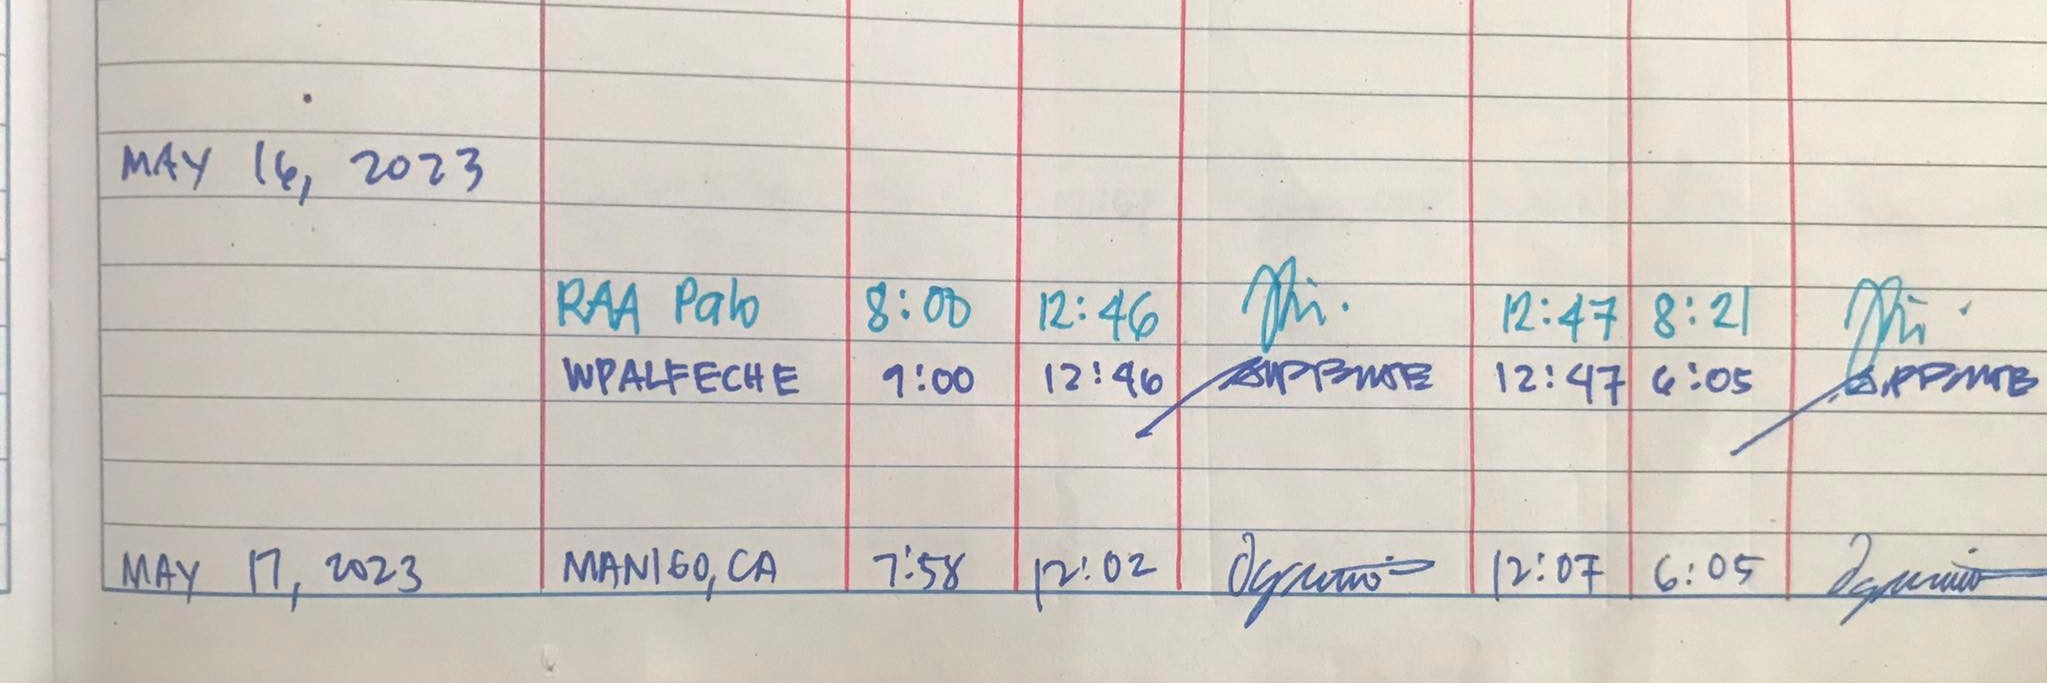 MAY 16, 2023
RAA Palo 8:00 12:46 12:47 8:21
WPALFECHE 9:00 12:46 12:47 6:05
MAY 17, 2023 MANIGO, CA 7:58 12:02 12:07 6:05